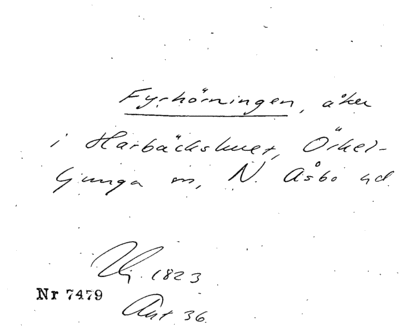 Fyrhörningen, åker
i Harbäckshult, Örkel-
ljunga sn, N. Åsbo hd
Uj. 1823
Nr 7479
Akt 36.